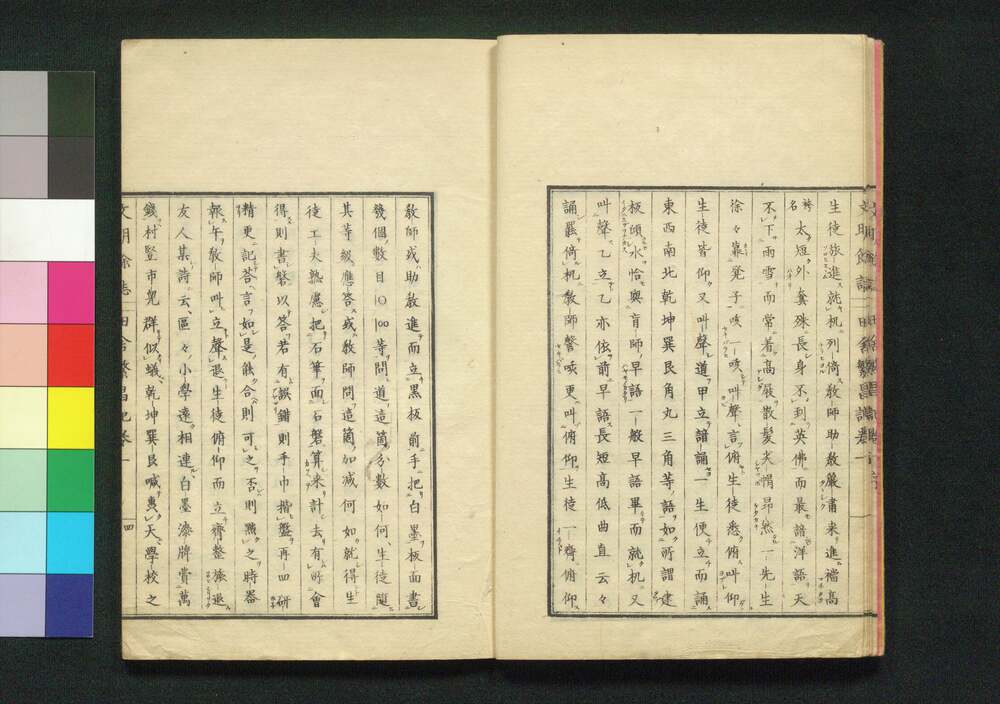 生徒旅進就机列倚教師助教嚴肅来進襠高
袴名太短外套殊長身不到英佛而最諳洋語天
不下雨雪而常着高屐散髪尖帽昂然一先生
徐々凳子咳一咳叫聲言俯生徒悉俯叫仰
生徒皆仰又叫聲道甲立諳誦一生便立而誦
東西南北乾坤巽艮角丸三角等語如所謂建
板頭水恰與盲師早語一般早語畢而就机又
叫聲乙立乙亦依前早語長短高低曲直云々
誦罷倚机教師謦咳更叫俯仰生徒一齊俯仰
教師或助教進而立黒板前手把白墨板面書
幾個數目10 100等問道這箇分數如何生徒隨
其等級應答或教師問這箇加減何如就得生
徒工夫熟慮把石筆面石盤算来計去有所會
得則書盤以答若有誤錯則手巾揩盤再四研
精更記答言如是能合則可之否則黙之時器
報午教師叫立聲退生徒俯仰而立齊整旅退
友人某詩云區々小學遠相連白墨漆牌賞萬
錢村竪市児群似蟻乾坤巽艮喊連天學校之
文明餘誌 田舎繁昌記巻一 四